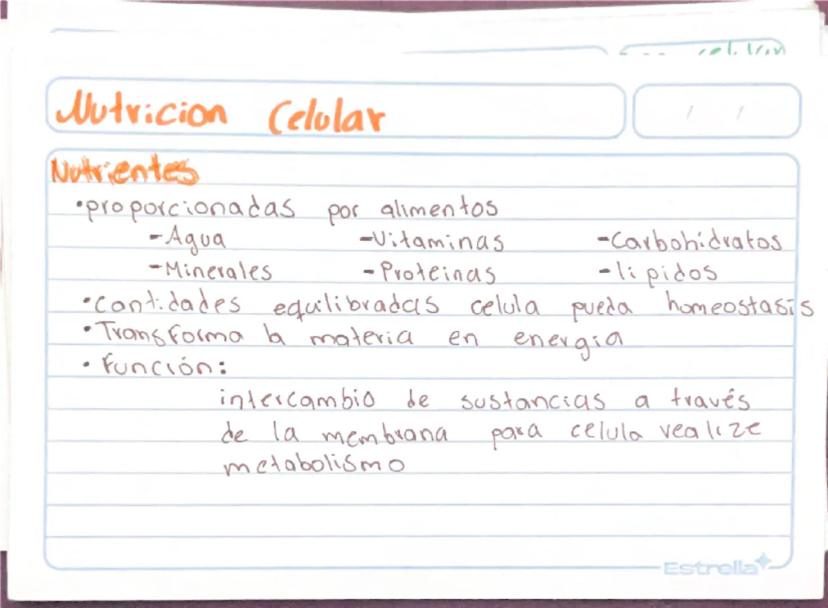 Nutricion Celular
/ /
Nutrientes
•proporcionadas por alimentos
-Agua -Vitaminas -Carbohidratos
-Minerales -Proteinas -lipidos
•cantidades equilibradas celula pueda homeostasis
•Transforma la materia en energia
•Función:
intercambio de sustancias a través
de la membrana para celula realize
metabolismo
Estrella